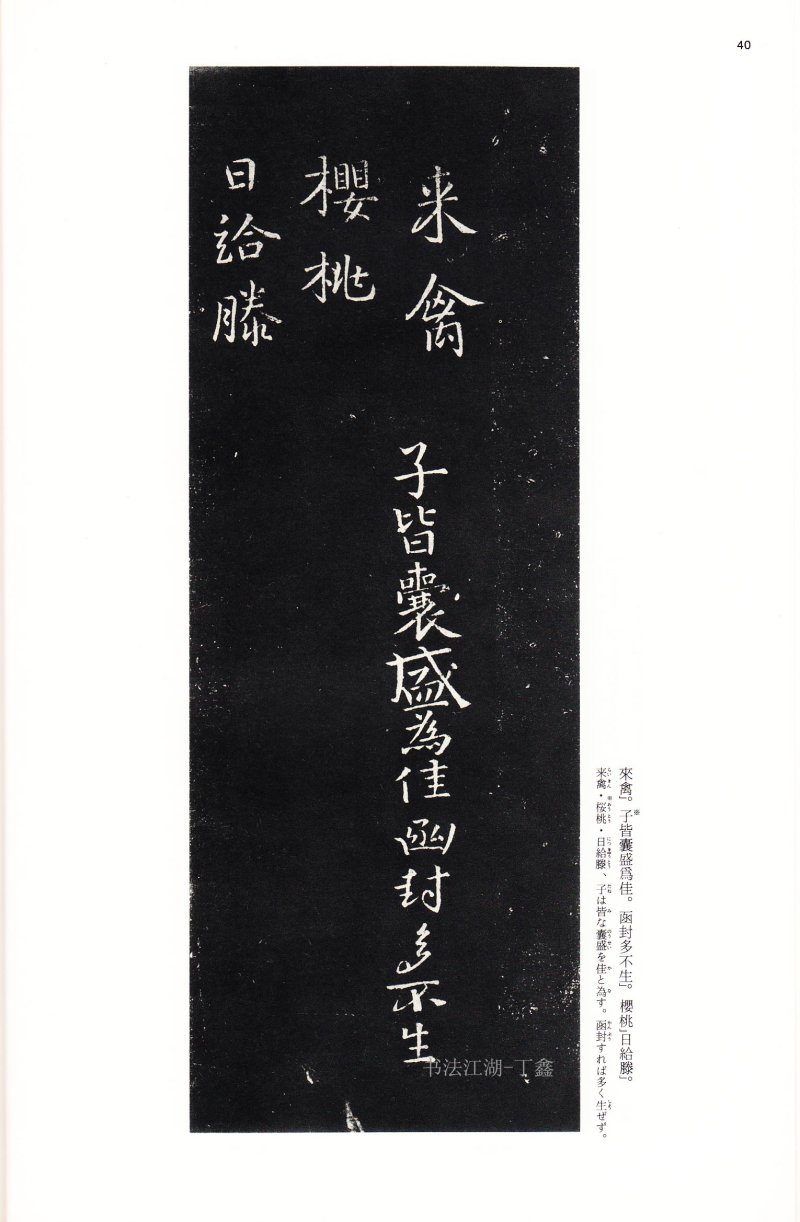 40
来禽
子皆囊盛為佳函封多不生
櫻桃
日給滕
來禽」。子※皆囊盛爲佳。函封多不生」。櫻桃」日給滕」。
来禽・桜桃・日給滕、子は皆な囊盛を佳と為す。函封すれば多く生ぜず。
书法江湖-丁鑫